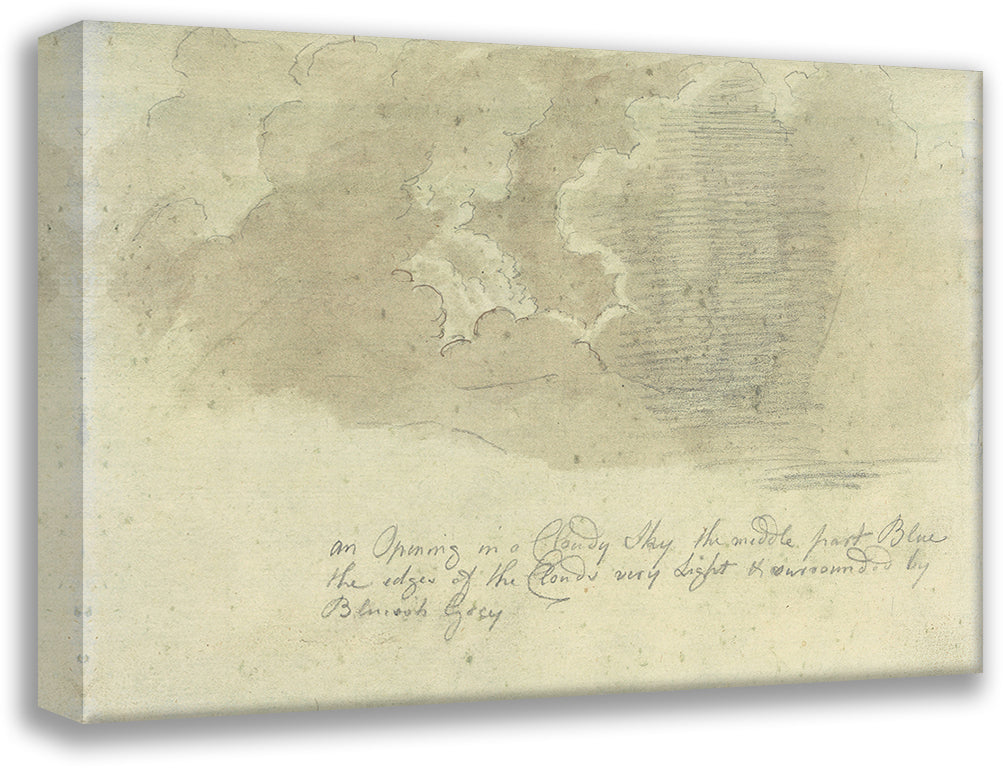 an Opening in a Cloudy Sky the middle part Blue
the edges of the Clouds very Light & surrounded by
Blueish Grey